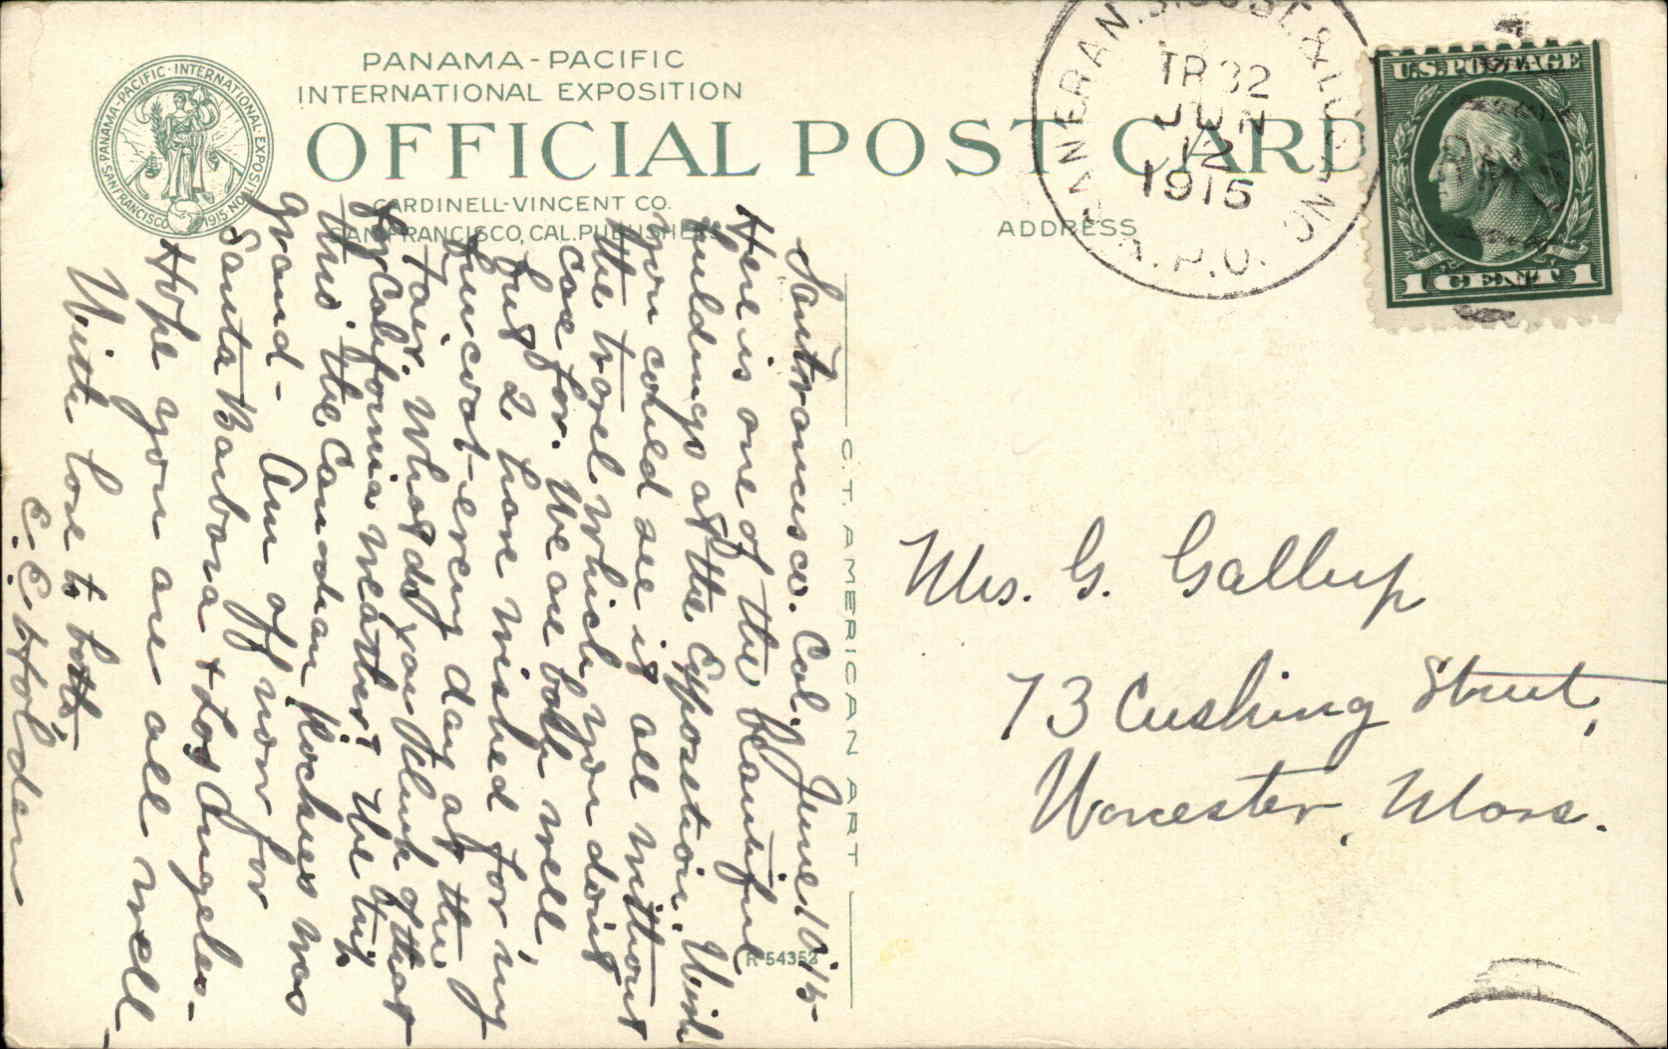 PANAMA-PACIFIC
INTERNATIONAL EXPOSITION
OFFICIAL POST CARD
CARDINELL-VINCENT CO.
SAN FRANCISCO, CAL. PUBLISHERS
ADDRESS
PANAMA-PACIFIC · INTERNATIONAL · EXPOSITION
SAN FRANCISCO 1915
SAN JOSE &
TR 32
JUN
12
1915
R.P.O.
U.S. POSTAGE
1 CENT 1
C.T. AMERICAN ART
R-54352
San Francisco. Cal. June 10, '15-
Here is one of the beautiful
buildings at the Exposition. Wish
you could see it all without
the travel which you don't
care for. We are both well
but I have wished for my
fur coat - every day at the
Fair. What do you think of that
for California weather? The trip
thro' the Canadian Rockies was
grand - Am off now for
Santa Barbara + Los Angeles. -
Hope you are all well -
With love to both,
E. E. Holden
Mrs. G. Gallup
73 Cushing Street,
Worcester, Mass.